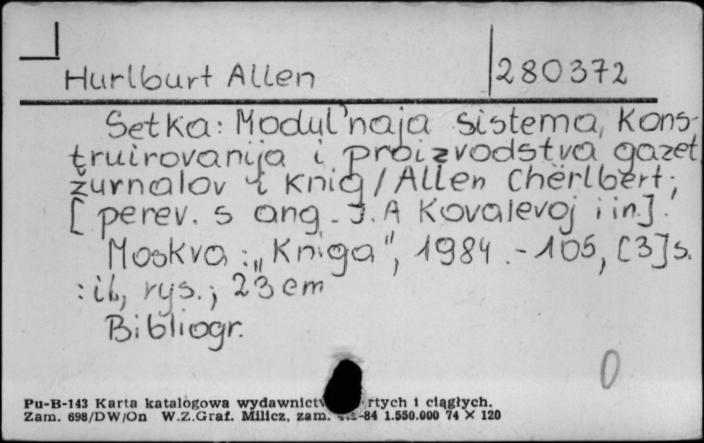 Hurlburt Allen 280372
Setka: Modul'naja sistema, kons-
truirovanija i proizvodstva gazet,
žurnalov i knig / Allen Chërlbert;
[perev. s ang. J.A Kovalevoj i in].
Moskva: „Kniga", 1984.-105, [3]s.
: il., rys.; 23 cm
Bibliogr.
0
Pu-B-143 Karta katalogowa wydawnictw rtych i ciągłych.
Zam. 698/DW/On W.Z.Graf. Milicz, zam. -84 1.550.000 74 × 120